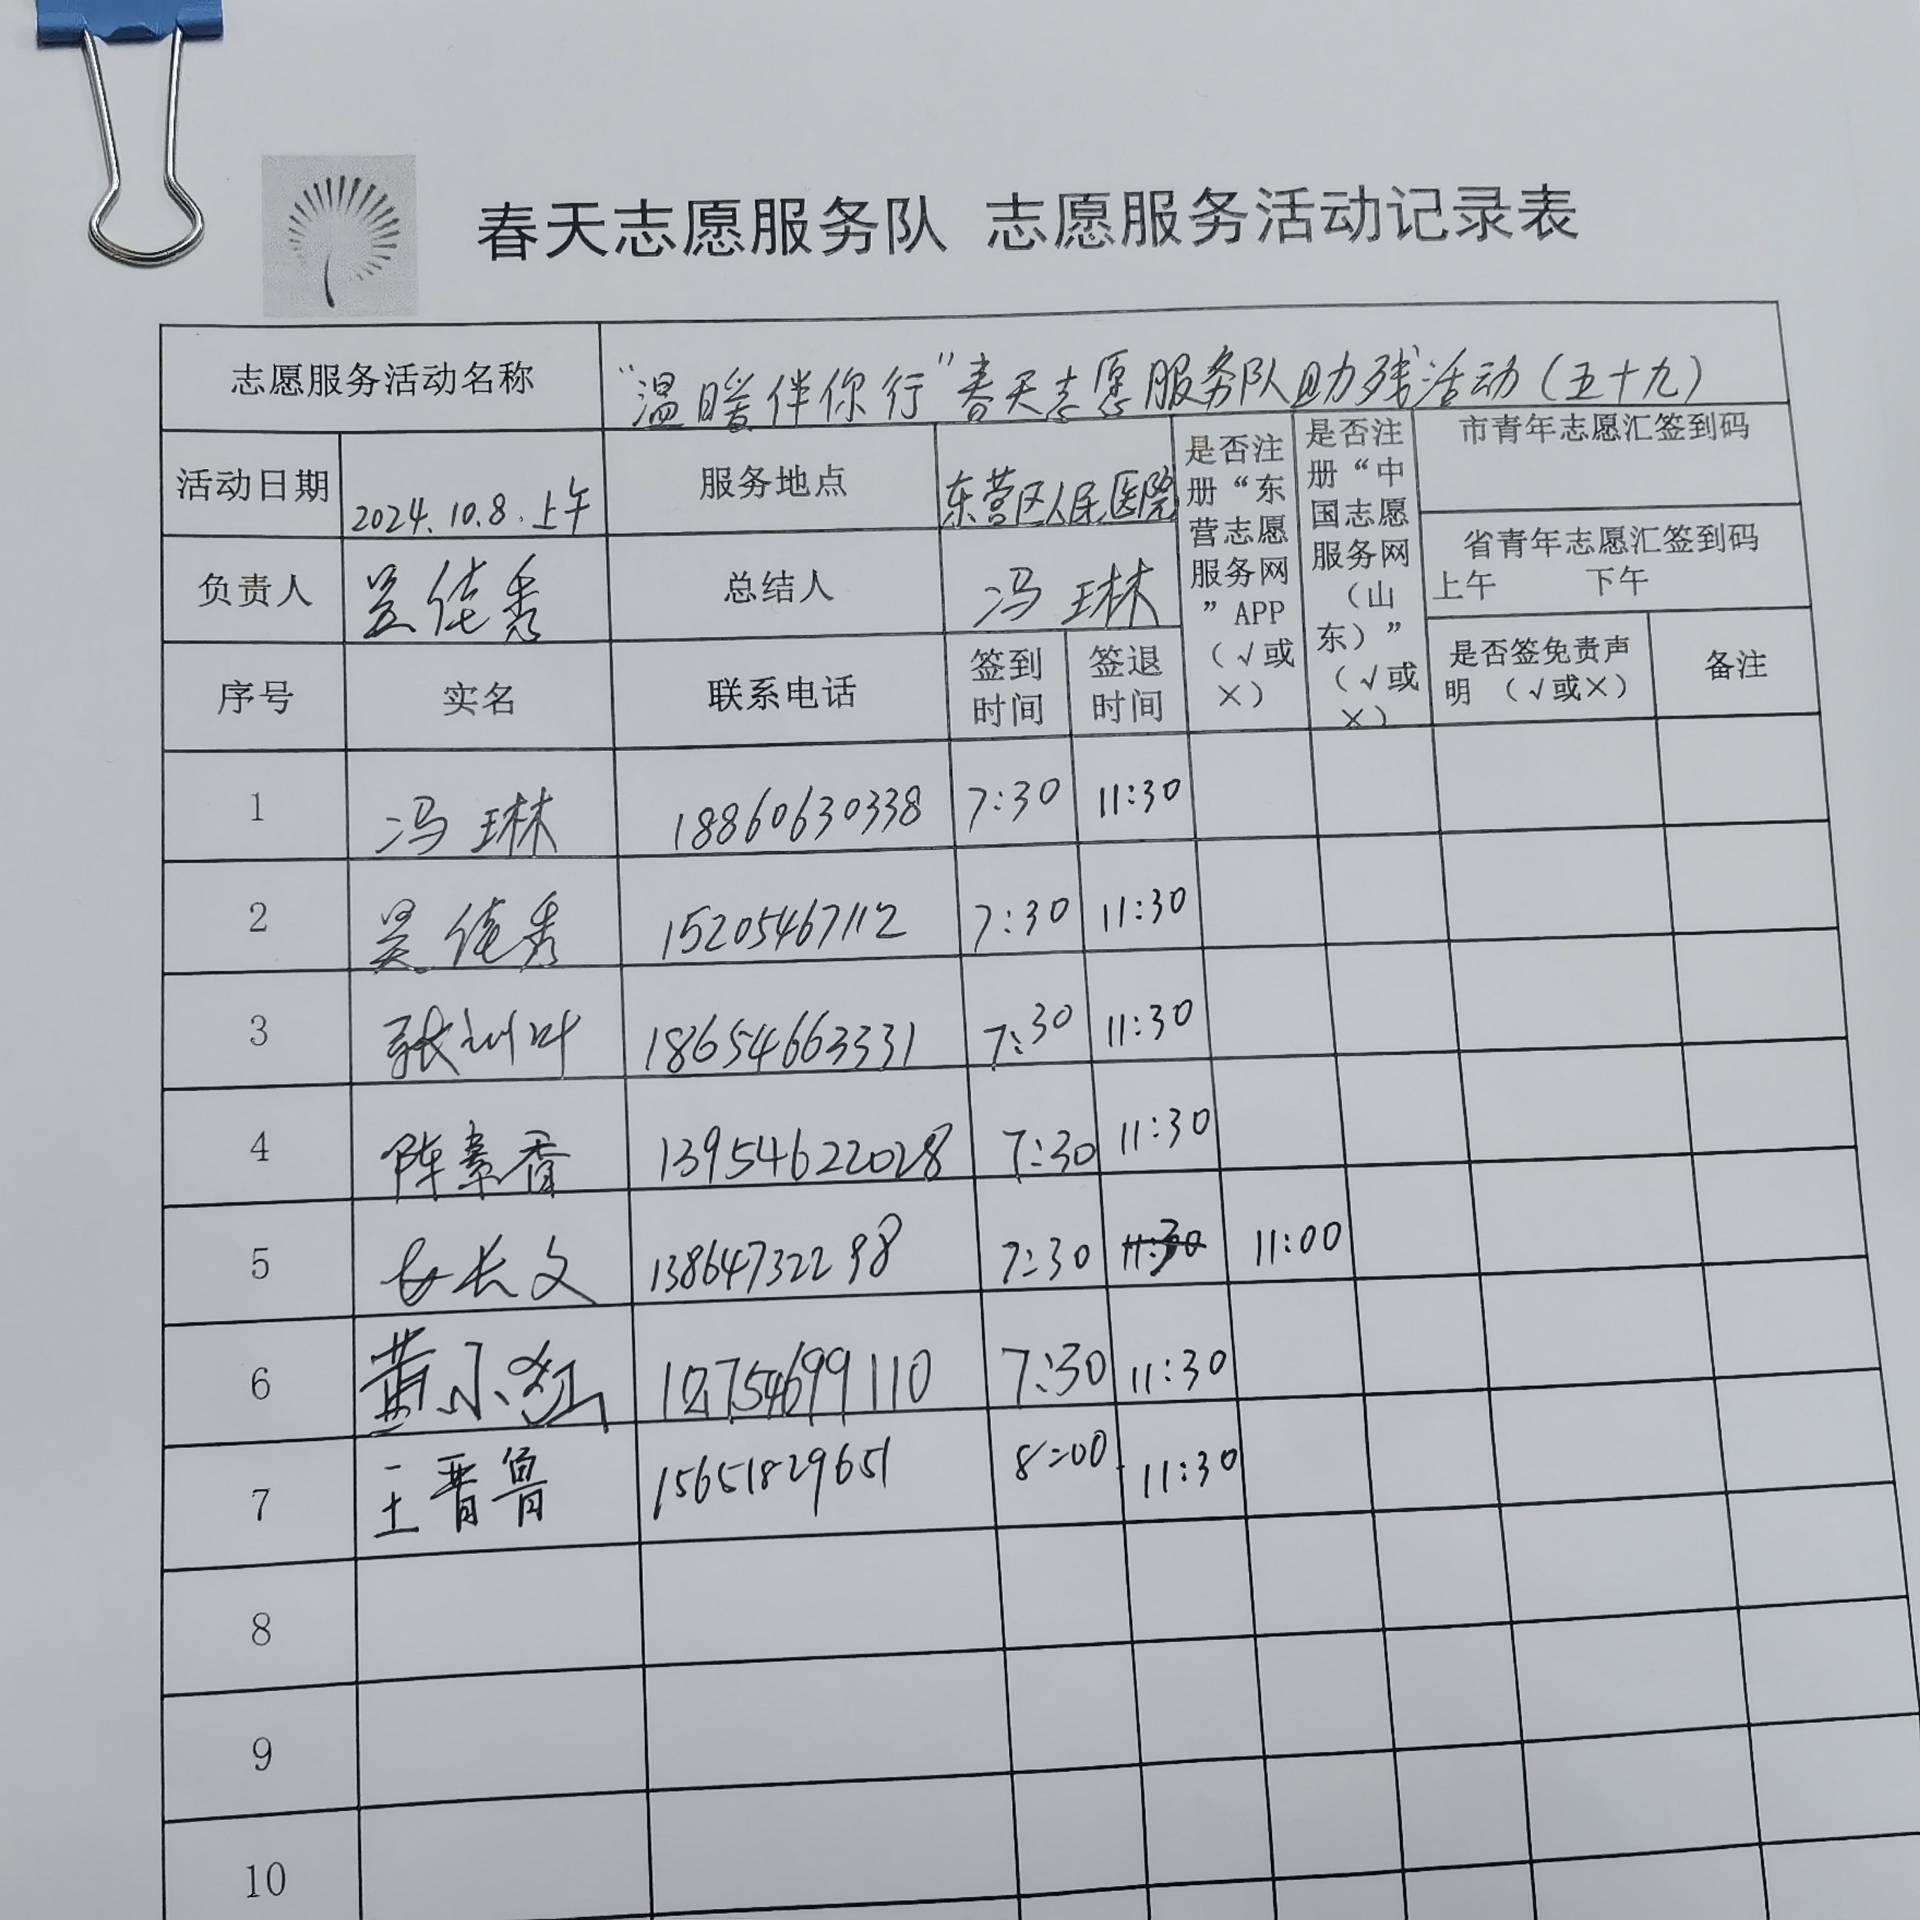 春天志愿服务队 志愿服务活动记录表
志愿服务活动名称 “温暖伴你行”春天志愿服务队助残活动（五十九）
活动日期 2024.10.8.上午 服务地点 东营区人民医院
是否注册“东营志愿服务网”APP（√或×）
是否注册“中国志愿服务网（山东）”（√或×）
市青年志愿汇签到码
省青年志愿汇签到码
上午 下午
负责人 吴佳秀 总结人 冯琳
序号 实名 联系电话 签到时间 签退时间 是否签免责声明（√或×） 备注
1 冯琳 18860630338 7:30 11:30
2 吴佳秀 15205467112 7:30 11:30
3 张 叶 18654663331 7:30 11:30
4 陈素香 13954622028 7:30 11:30
5 长文 13864732298 7:30 11:30 11:00
6 黄小红 7:30 11:30
7 王晋鲁 15651829651 8:00 11:30
8
9
10